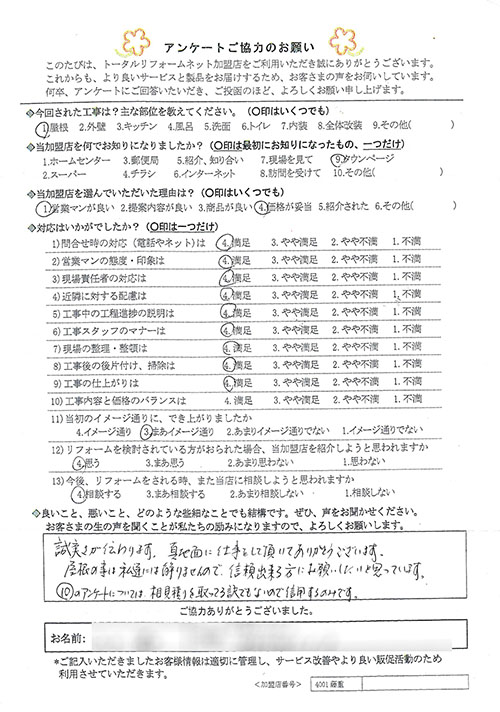 アンケートご協力のお願い
このたびは、トータルリフォームネット加盟店をご利用いただき誠にありがとうございます。
これからも、より良いサービスと製品をお届けするため、お客さまの声をお伺いしています。
何卒、アンケートにご回答いただき、ご投函のほど、よろしくお願い申し上げます。
◆今回された工事は?主な部位を教えてください。(○印はいくつでも)
1.屋根 2.外壁 3.キッチン 4.風呂 5.洗面 6.トイレ 7.内装 8.全体改装 9.その他( )
◆当加盟店を何でお知りになりましたか?(○印は最初にお知りになったもの、一つだけ)
1.ホームセンター 3.郵便局 5.紹介、知り合い 7.現場を見て 9.タウンページ
2.スーパー 4.チラシ 6.インターネット 8.訪問を受けて 10.その他( )
◆当加盟店を選んでいただいた理由は?(○印はいくつでも)
1.営業マンが良い 2.提案内容が良い 3.商品が良い 4.価格が妥当 5.紹介された 6.その他( )
◆対応はいかがでしたか?(○印は一つだけ)
1)問合せ時の対応(電話やネット)は 4.満足 3.やや満足 2.やや不満 1.不満
2)営業マンの態度・印象は 4.満足 3.やや満足 2.やや不満 1.不満
3)現場責任者の対応は 4.満足 3.やや満足 2.やや不満 1.不満
4)近隣に対する配慮は 4.満足 3.やや満足 2.やや不満 1.不満
5)工事中の工程進捗の説明は 4.満足 3.やや満足 2.やや不満 1.不満
6)工事スタッフのマナーは 4.満足 3.やや満足 2.やや不満 1.不満
7)現場の整理・整頓は 4.満足 3.やや満足 2.やや不満 1.不満
8)工事後の後片付け、掃除は 4.満足 3.やや満足 2.やや不満 1.不満
9)工事の仕上がりは 4.満足 3.やや満足 2.やや不満 1.不満
10)工事内容と価格のバランスは 4.満足 3.やや満足 2.やや不満 1.不満
11)当初のイメージ通りに、でき上がりましたか
4.イメージ通り 3.まあイメージ通り 2.あまりイメージ通りでない 1.イメージ通りでない
12)リフォームを検討されている方がおられた場合、当加盟店を紹介しようと思われますか
4.思う 3.まあ思う 2.あまり思わない 1.思わない
13)今後、リフォームをされる時、また当店に相談しようと思われますか
4.相談する 3.まあ相談する 2.あまり相談しない 1.相談しない
◆良いこと、悪いこと、どのような些細なことでも結構です。ぜひ、声をお聞かせください。
お客さまの生の声を聞くことが私たちの励みになりますので、よろしくお願いします。
誠実さが伝わります。真地面に仕事をして頂いてありがとうございます。
屋根の事は私達には解りませんので、信頼出来る方にお願いしたいと思っています。
⑩のアンケートについては、相見積りを取ってる訳でもないので信用するのみです。
ご協力ありがとうございました。
お名前:
*ご記入いただきましたお客様情報は適切に管理し、サービス改善やより良い販促活動のため
利用させていただきます。
<加盟店番号> 4001 藤重